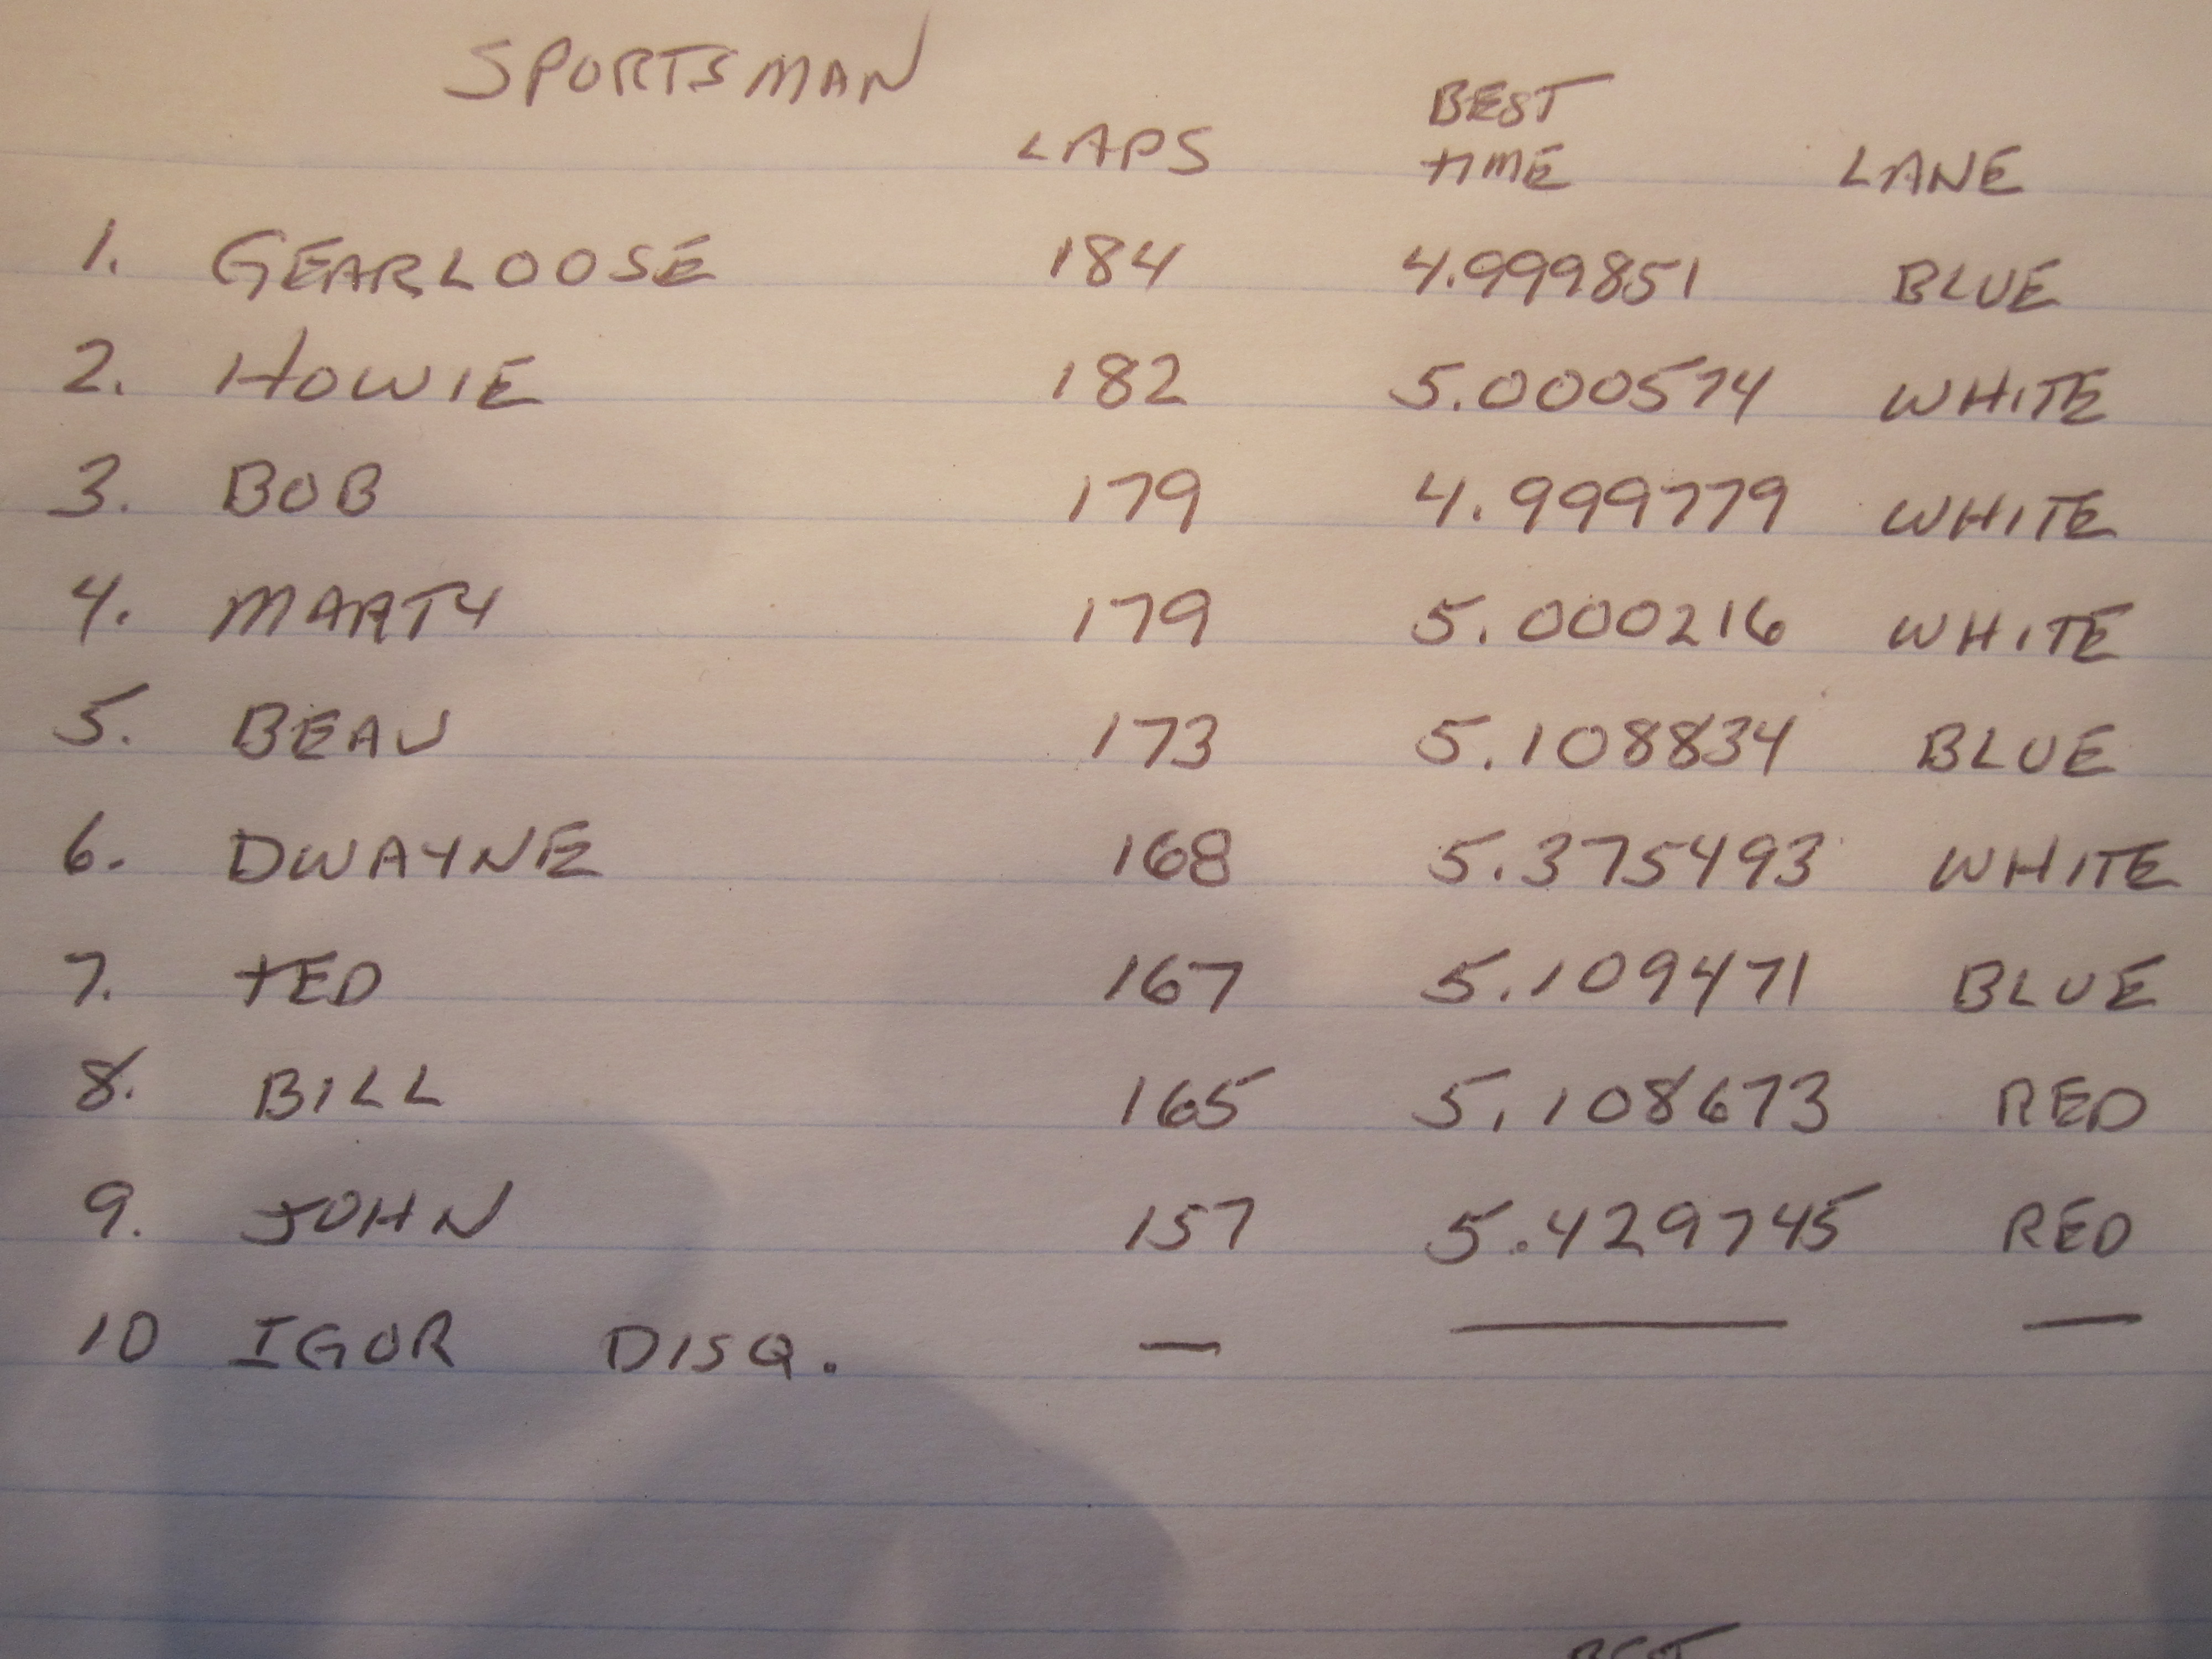 SPORTSMAN
LAPS BEST TIME LANE
1. GEARLOOSE 184 4.999851 BLUE
2. HOWIE 182 5.000574 WHITE
3. BOB 179 4.999779 WHITE
4. MARTY 179 5.000216 WHITE
5. BEAU 173 5.108834 BLUE
6. DWAYNE 168 5.375493 WHITE
7. TED 167 5.109471 BLUE
8. BILL 165 5.108673 RED
9. JOHN 157 5.429745 RED
10 IGOR DISQ. — — —